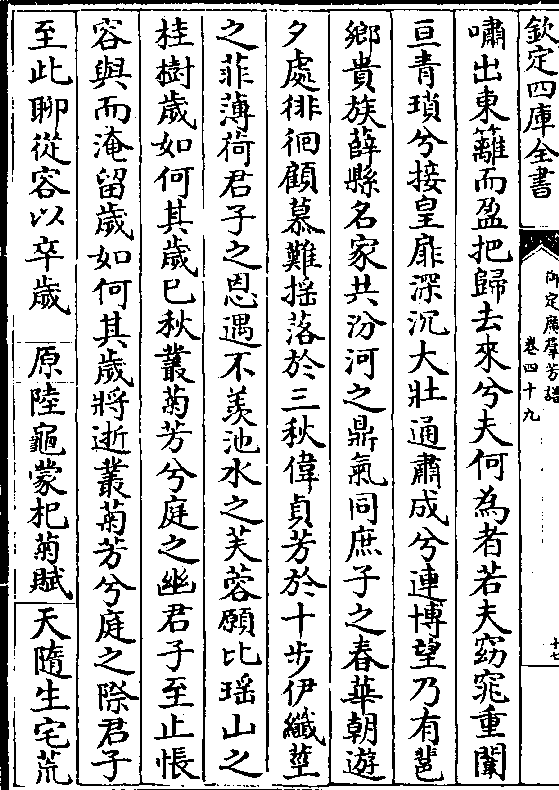 欽定四庫全書
御定廣羣芳譜
卷四十九
十七
嘯出東籬而盈把歸去來兮夫何為者若夫窈窕重闈
亘青瑣兮接皇扉深沉大壯通肅成兮連博望乃有邕
鄉貴族薛縣名家共汾河之鼎氣同庶子之春華朝遊
夕處徘徊顧慕難搖落於三秋偉貞芳於十步伊纖莖
之菲薄荷君子之恩遇不羨池水之芙蓉願比瑶山之
桂樹歲如何其歲已秋叢菊芳兮庭之幽君子至止悵
容與而淹留歲如何其歲將逝叢菊芳兮庭之際君子
至此聊從容以卒歲 原陸龜蒙杞菊賦 天隨生宅荒